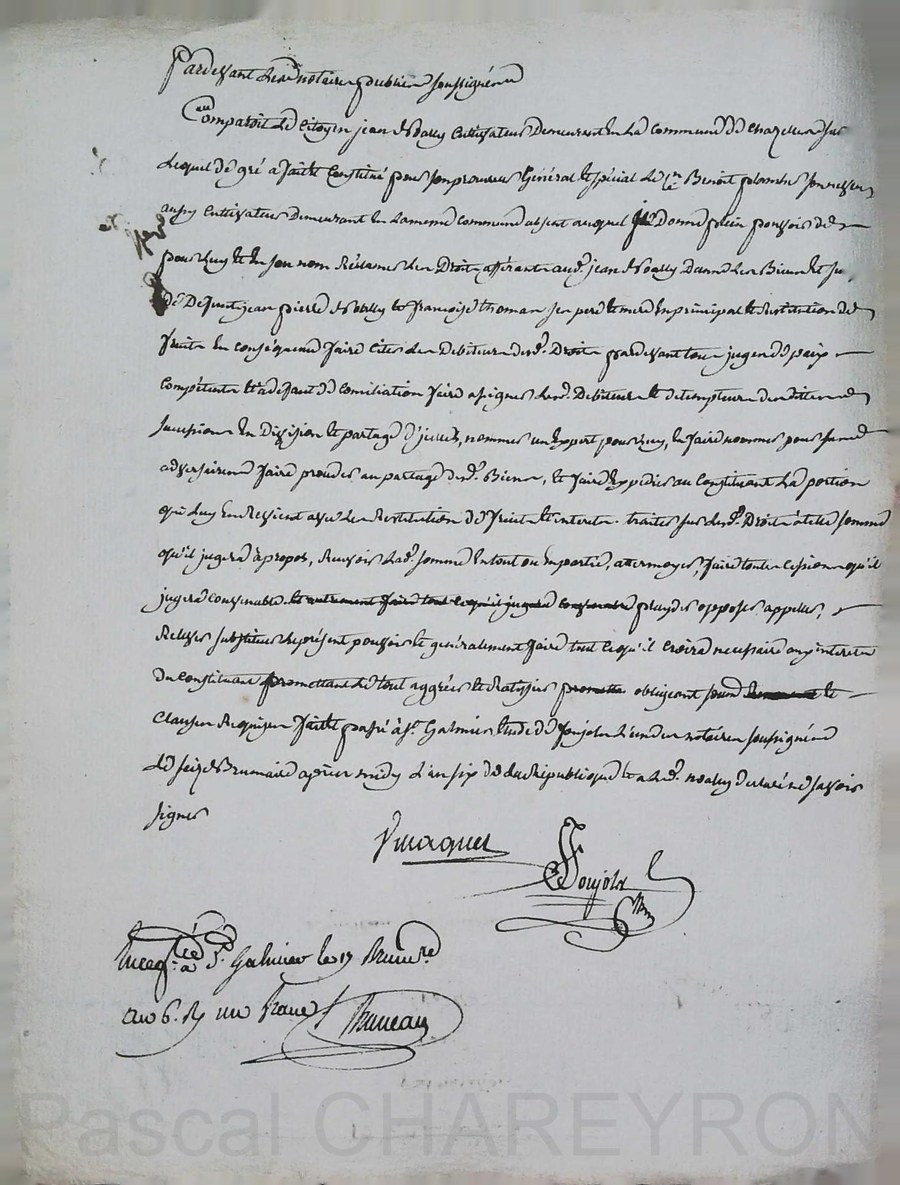 Pardevant les notaires publics soussignés
Comparoit le Citoyen jean Noally Cultivateur demeurant en la commune de chazelles sur
Lequel de gré a fait et constitué pour son procureur Général et spécial le Cn. Benoit son neveu
aussi cultivateur demeurant en la meme commune absent auquel il Donne plein pouvoir de
pour luy et en son nom Réclamer les Droits afférants aud. jean Noally dans les Biens et su
de Defunt jean pierre Noally et françoise thomas ses pere et mere en principal et Restitution de
fruits En conséquence faire citer les Debiteurs desd. Droits pardevant tous juges de paix
Compétents et a défaut de conciliation faire assigner lesd. Debiteurs et detempteurs desdittes
successions En Division et partage d'icelles, nommer un Expert pour luy, en faire nommer pour
adversaires faire proceder au partage desd. Biens, et faire Expedier au Constituant la portion
qui luy En Revient avec les Restitutions de fruits et interets traiter sur lesd. Droits à telle somme
qu'il jugera àpropos, Recevoir lad. somme En tout ou En partie, attermoyer, faire toutes cessions qu'il
jugera convenable et autrement faire tout ce qu'il jugera convenable plaider opposer, appeller,
Relever substituer le présent pouvoir et généralement faire tout ce qu'il croira necessaire aux interets
du constituant promettant le tout aggréer et Ratifier obligeant et
Clauses Requises fait et passé à St. Galmier Etude de Soujols l'un des notaires soussignés
Le seize Brumaire après midy L'an six de la République et a led. noally déclaré ne savoir
signer
Soujols
Nre
Enregté à St. Galmier le 17 Brumre
an 6. R un franc
Bruneau
Pascal CHAREYRON